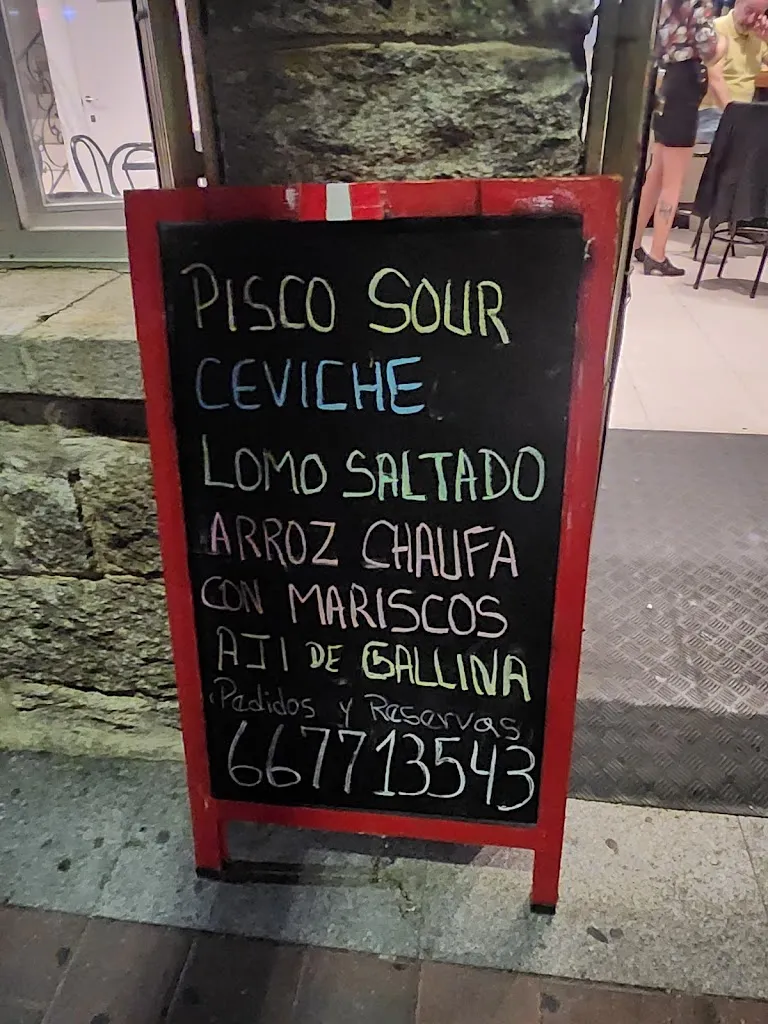 PISCO SOUR
CEVICHE
LOMO SALTADO
ARROZ CHAUFA
CON MARISCOS
AJI DE GALLINA
Pedidos y Reservas
667713543